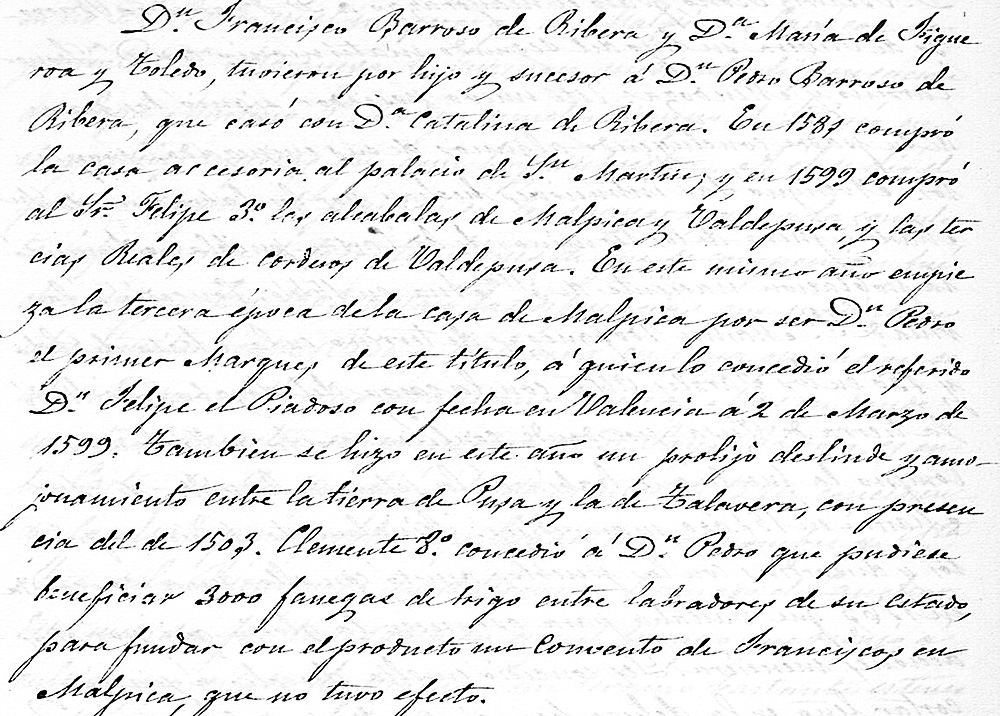 Dⁿ Francisco Barroso de Ribera y Dᵃ María de Figue
roa y Toledo, tuvieron por hijo y sucesor á Dⁿ Pedro Barroso de
Ribera, que casó con Dᵃ Catalina de Ribera. En 1587 compró
la casa accesoria al palacio de Sⁿ Martin; y en 1599 compró
al Sr. Felipe 3º las alcabalas de Malpica y Valdepusa, y las ter
cias Reales de corderos de Valdepusa. En este mismo año empie
za la tercera época de la casa de Malpica por ser Dⁿ Pedro
el primer Marques de este título, á quien lo concedió el referido
Dⁿ Felipe el Piadoso con fecha en Valencia á 2 de Marzo de
1599. Tambien se hizo en este año un prolijo deslinde y amo-
jonamiento entre la tierra de Pusa y la de Talavera, con presen
cia del de 1503. Clemente 8º concedió á Dⁿ Pedro que pudiese
beneficiar 3000 fanegas de trigo entre labradores de su estado,
para fundar con el producto un convento de Franciscos en
Malpica, que no tuvo efecto.